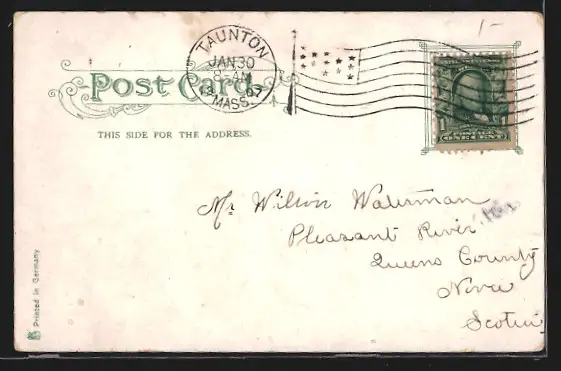 1-
TAUNTON
JAN 30
8-AM
1907
MASS.
Post Card
THIS SIDE FOR THE ADDRESS.
POSTAGE
ONE CENT
Mr Wilson Waterman
Pleasant River
Queens County
Nova
Scotia
Printed in Germany